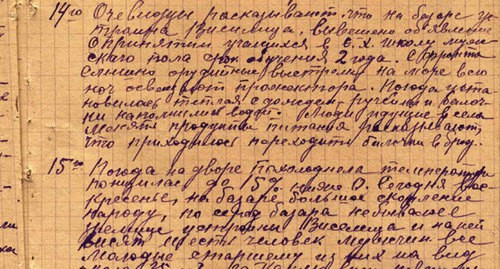 14го Очевидцы рассказывают, что на базаре ус
троина Виселица. Вывешено объявление
о принятии учащихся в С.Х. школу муж
ского пола срок обучения 2 года. С фронта
слышно орудийные выстрелы на море всю
ночь освещают прожектора. Погода уста
новилась теплая с дождем, ручьи и балоч
ки наполнились водой. Люди идущие в села
менять продукты питания рассказывают,
что приходилось переходить балочки в брод.
15го Погода на дворе похолодала температура
понизилась до 15° ниже 0. Сегодня Вос
кресенье, на базаре большое скопление
народу, но среди базара небывалое
зрелище устроена Виселица и на ней
висят шесть человек мужчин все
молодые старшему из них на вид
35